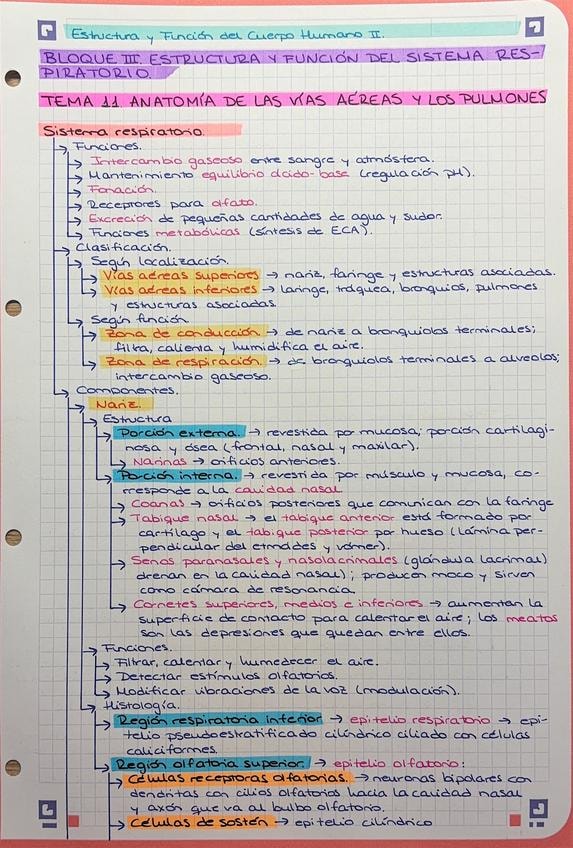 Estructura y Función del Cuerpo Humano II.
BLOQUE III. ESTRUCTURA Y FUNCIÓN DEL SISTEMA RES-
PIRATORIO.
TEMA 11 ANATOMÍA DE LAS VÍAS AÉREAS Y LOS PULMONES
Sistema respiratorio.
→ Funciones.
→ Intercambio gaseoso entre sangre y atmósfera.
→ Mantenimiento equilibrio ácido-base (regulación pH).
→ Fonación.
→ Receptores para olfato.
→ Excreción de pequeñas cantidades de agua y sudor.
→ Funciones metabólicas (síntesis de ECA).
→ Clasificación.
→ Según localización.
→ Vías aéreas superiores → nariz, faringe y estructuras asociadas.
→ Vías aéreas inferiores → laringe, tráquea, bronquios, pulmones
y estructuras asociadas.
→ Según función.
→ Zona de conducción → de nariz a bronquiolos terminales;
filtra, calienta y humidifica el aire.
→ Zona de respiración. → de bronquiolos terminales a alveolos;
intercambio gaseoso.
→ Componentes.
→ Nariz.
→ Estructura
→ Porción externa. → revestida por mucosa; porción cartilagi-
nosa y ósea (frontal, nasal y maxilar).
→ Narinas → orificios anteriores.
→ Porción interna. → revestida por músculo y mucosa, co-
rresponde a la cavidad nasal.
→ Coanas → orificios posteriores que comunican con la faringe
→ Tabique nasal → el tabique anterior está formado por
cartílago y el tabique posterior por hueso (lámina per-
pendicular del etmoides y vómer).
→ Senos paranasales y nasolacrimales (glándula lacrimal)
drenan en la cavidad nasal); producen moco y sirven
como cámara de resonancia.
→ Cornetes superiores, medios e inferiores → aumentan la
superficie de contacto para calentar el aire; los meatos
son las depresiones que quedan entre ellos.
→ Funciones.
→ Filtrar, calentar y humedecer el aire.
→ Detectar estímulos olfatorios.
→ Modificar vibraciones de la voz (modulación).
→ Histología.
→ Región respiratoria inferior → epitelio respiratorio → epi-
telio pseudoestratificado cilíndrico ciliado con células
caliciformes.
→ Región olfatoria superior. → epitelio olfatorio:
→ Células receptoras olfatorias. → neuronas bipolares con
dendritas con cilios olfatorios hacia la cavidad nasal
y axón que va al bulbo olfatorio.
→ Células de sostén → epitelio cilíndrico